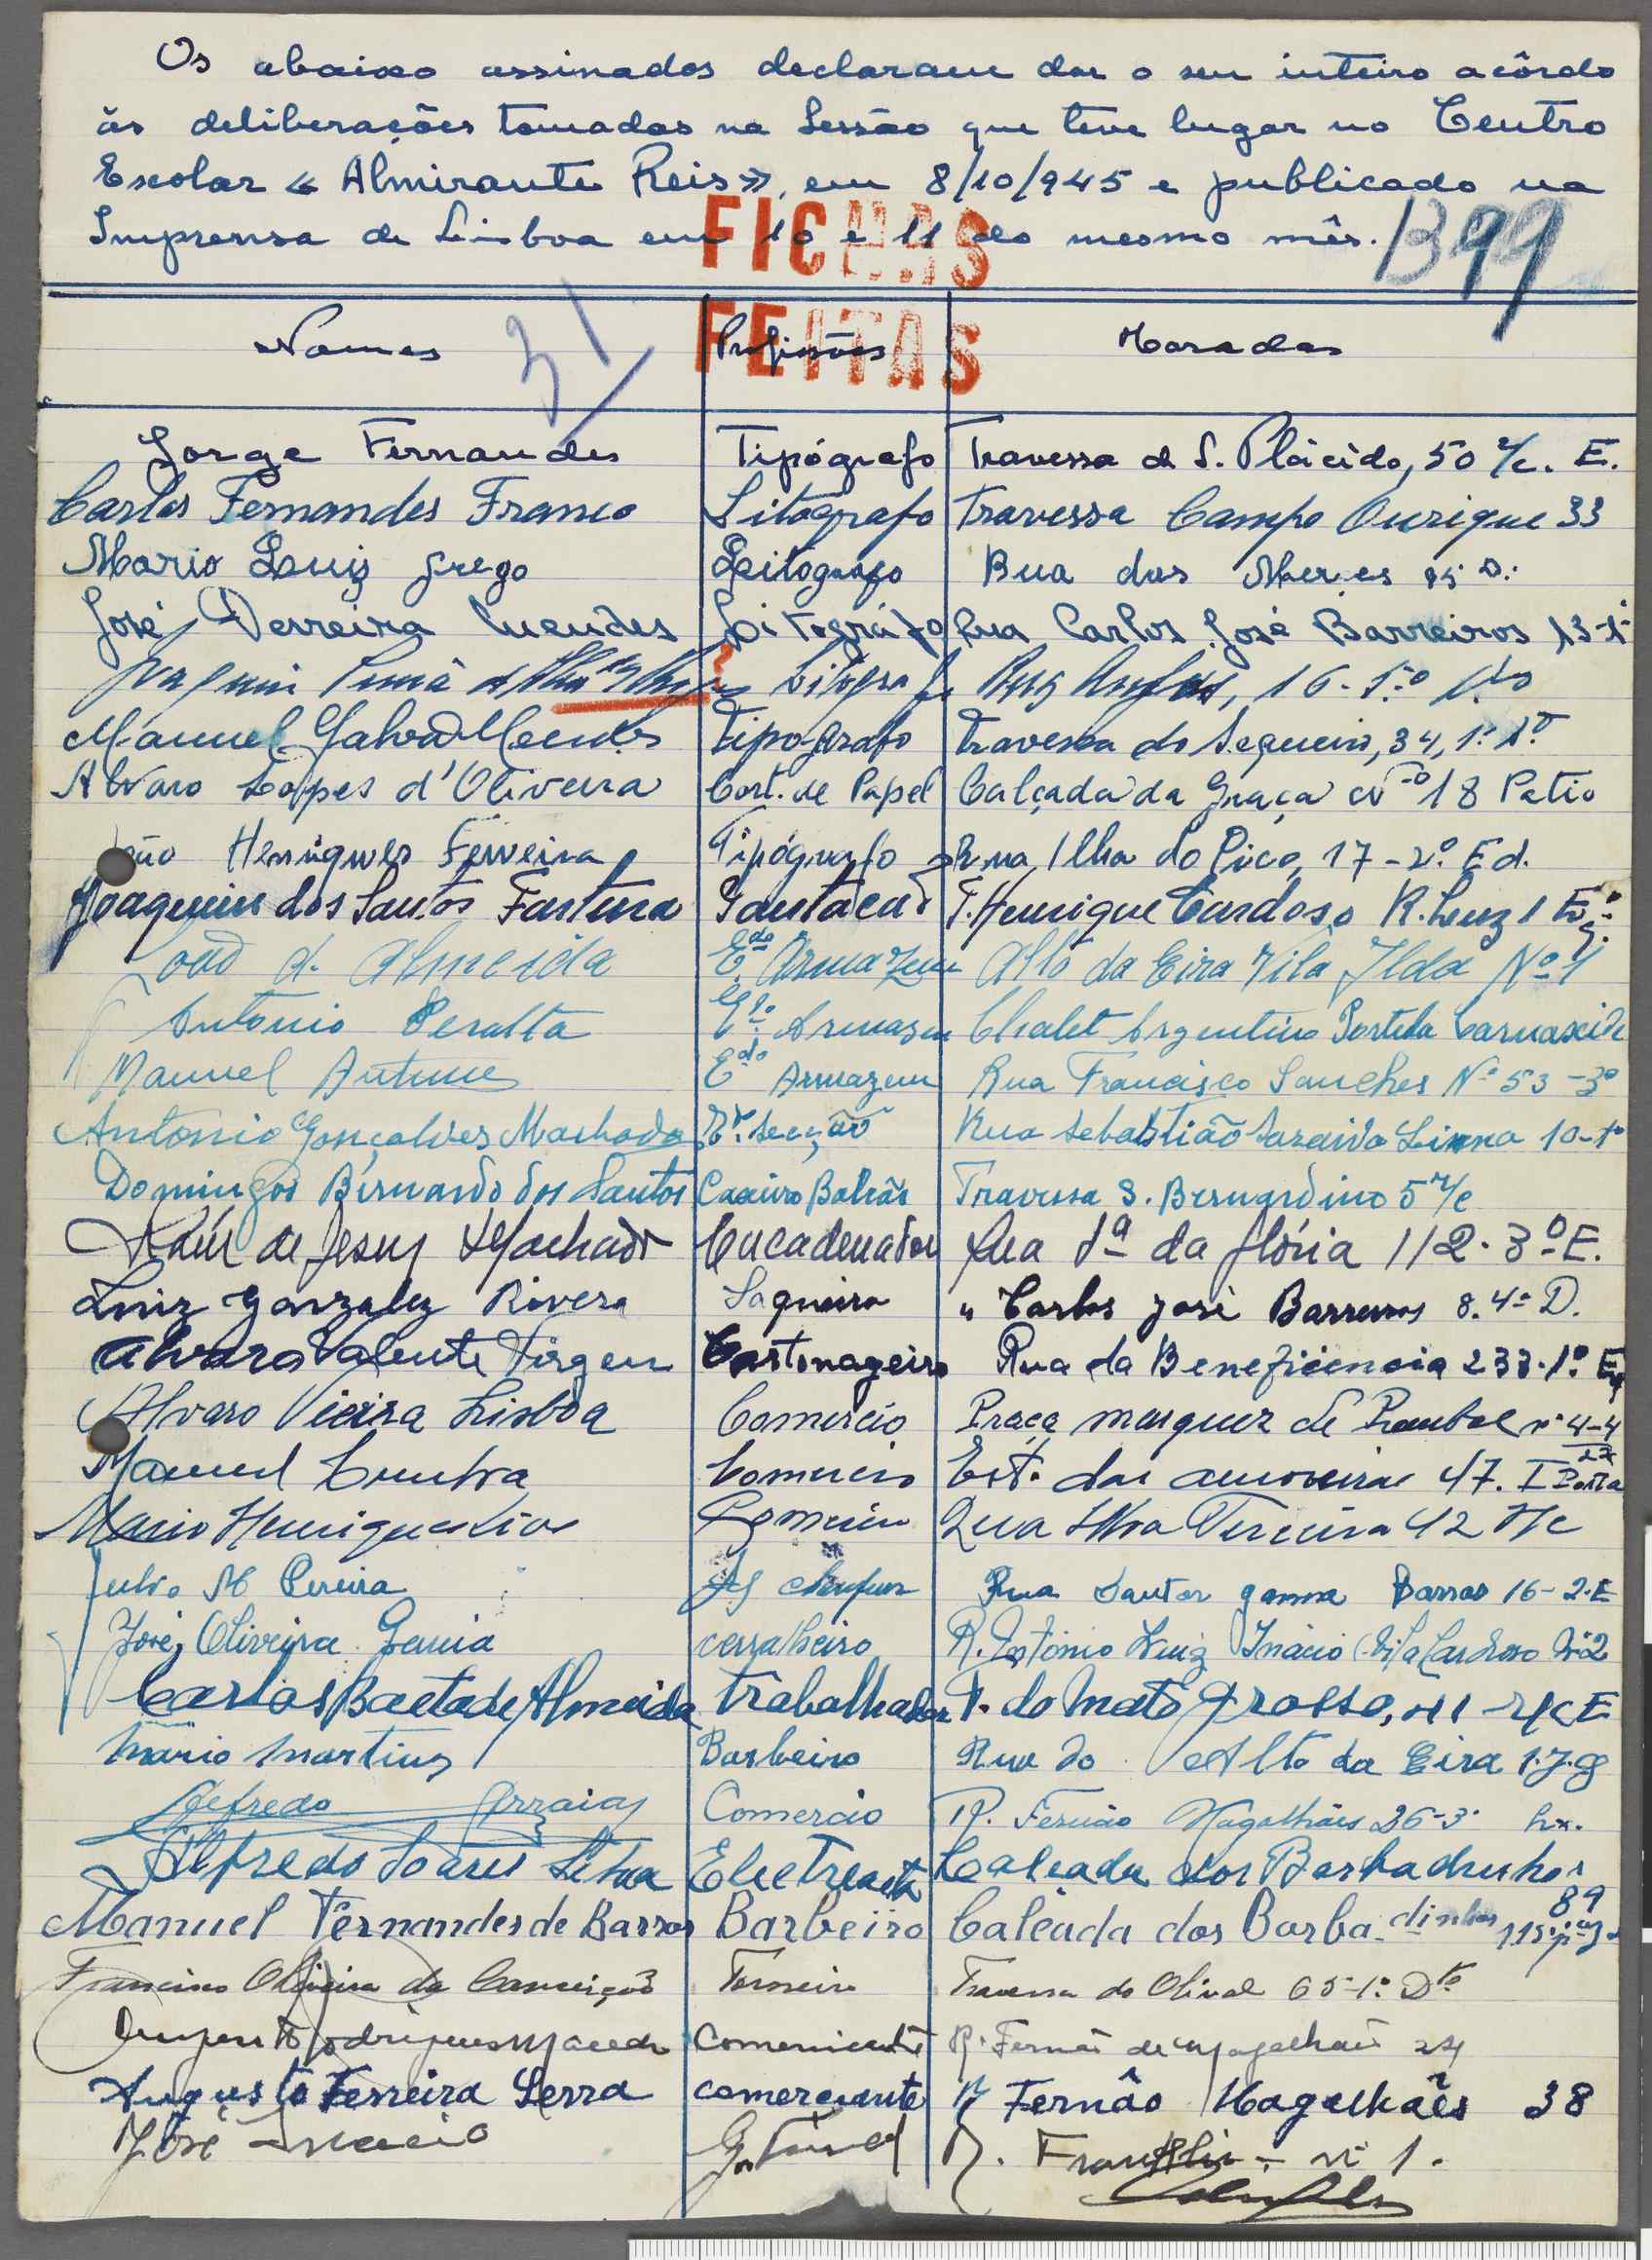 Os abaixo assinados declaram dar o seu inteiro acôrdo
ás deliberações tomadas na Sessão que teve lugar no Centro
Escolar « Almirante Reis », em 8/10/945 e publicado na
Imprensa de Lisboa em 10 e 11 do mesmo mês.
FICHAS
FEITAS
1399
31
Nomes Profissões Moradas
Jorge Fernandes Tipógrafo Travessa de S. Plácido, 50 r/c. E.
Carlos Fernandes Franco Litografo Travessa Campo Ourique 33
Mario Luiz Grego Leitografo Rua das Merces 95 D.
José Ferreira Mendes Litográfo Rua Carlos José Barreiros 13-1º
Litografo 16-1º
Manuel Galvão Mendes Tipografo Travessa do Sequeiro, 34, 1º Dtº
Alvaro Lopes d'Oliveira Cort. de Papel Calçada da Graça nº 18 Patio
João Henriques Ferreira Tipógrafo Rua Ilha do Pico, 17-2º Ed.
Joaquim dos Santos Fartura Pautador T. Henrique Cardoso R. Luz 1 Eq.
João d. Almeida Edo Armazem Alto da Eira Vila Ilda Nº 4
Antonio Peralta Armazem Chalet Argentino Portela Carnaxide
Manuel Antunes Edo Armazem Rua Francisco Sanches Nº 53-3º
Antonio Gonçalves Machado Er. Secção Rua Sebastião Saraiva Lima 10-1º
Domingos Bernardo dos Santos Caxeiro Balcão Travessa S. Bernardino 5 r/c
Raúl de Jesus Machado Encadernador Rua 1ª da Glória 112-3º E.
Luiz Gonzalez Rivera Saqueiro " Carlos José Barreiros 8. 4º D.
Alvaro Valente Virgem Cartonageiro Rua da Beneficiencia 233-1º Eq
Alvaro Vieira Lisboa Comercio Praça marquez de Pombal nº 4-4
Manuel Cunha Comercio Est. das amoreiras 47. I Porta
Mario Henriques Comercio Rua Ilha Terceira 42 r/c
Julio M Pereira Rua Santos gama Barros 16-2-E
José Oliveira Gama cerralheiro R. António Luiz Inácio (Vila Cardoso Nº 2
Carlos Baeta de Almeida trabalhador T. do Mato Grosso, r/c E
Mário Martins Barbeiro Rua do Alto da Eira
Alfredo Arraias Comercio R. Fernão Magalhães 26-3º Lx.
Alfredo Soares Electrecista Calçada dos Barbadinhos 89
Manuel Fernandes de Barros Barbeiro Calçada dos Barbadinhos 115
Francisco Oliveira da Conceição Torneiro Travessa do Olival 65-1º Dto
Augusto Rodrigues Macedo Comerciante R. Fernão de Magalhães 24
Augusto Ferreira Serra comerciante R Fernão Magalhães 38
José Inacio R. Franklin nº 1.